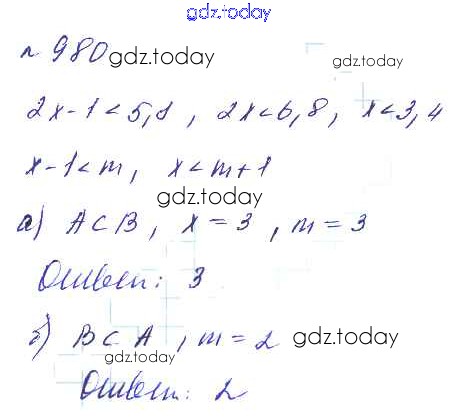 gdz.today
№ 980 gdz.today gdz.today
2x-1<5,8, 2x<6,8, x<3,4
x-1<m, x<m+1
gdz.today
а) A⊂B, x=3, m=3
Ответ: 3
б) B⊂A, m=2 gdz.today
gdz.today
Ответ: 2